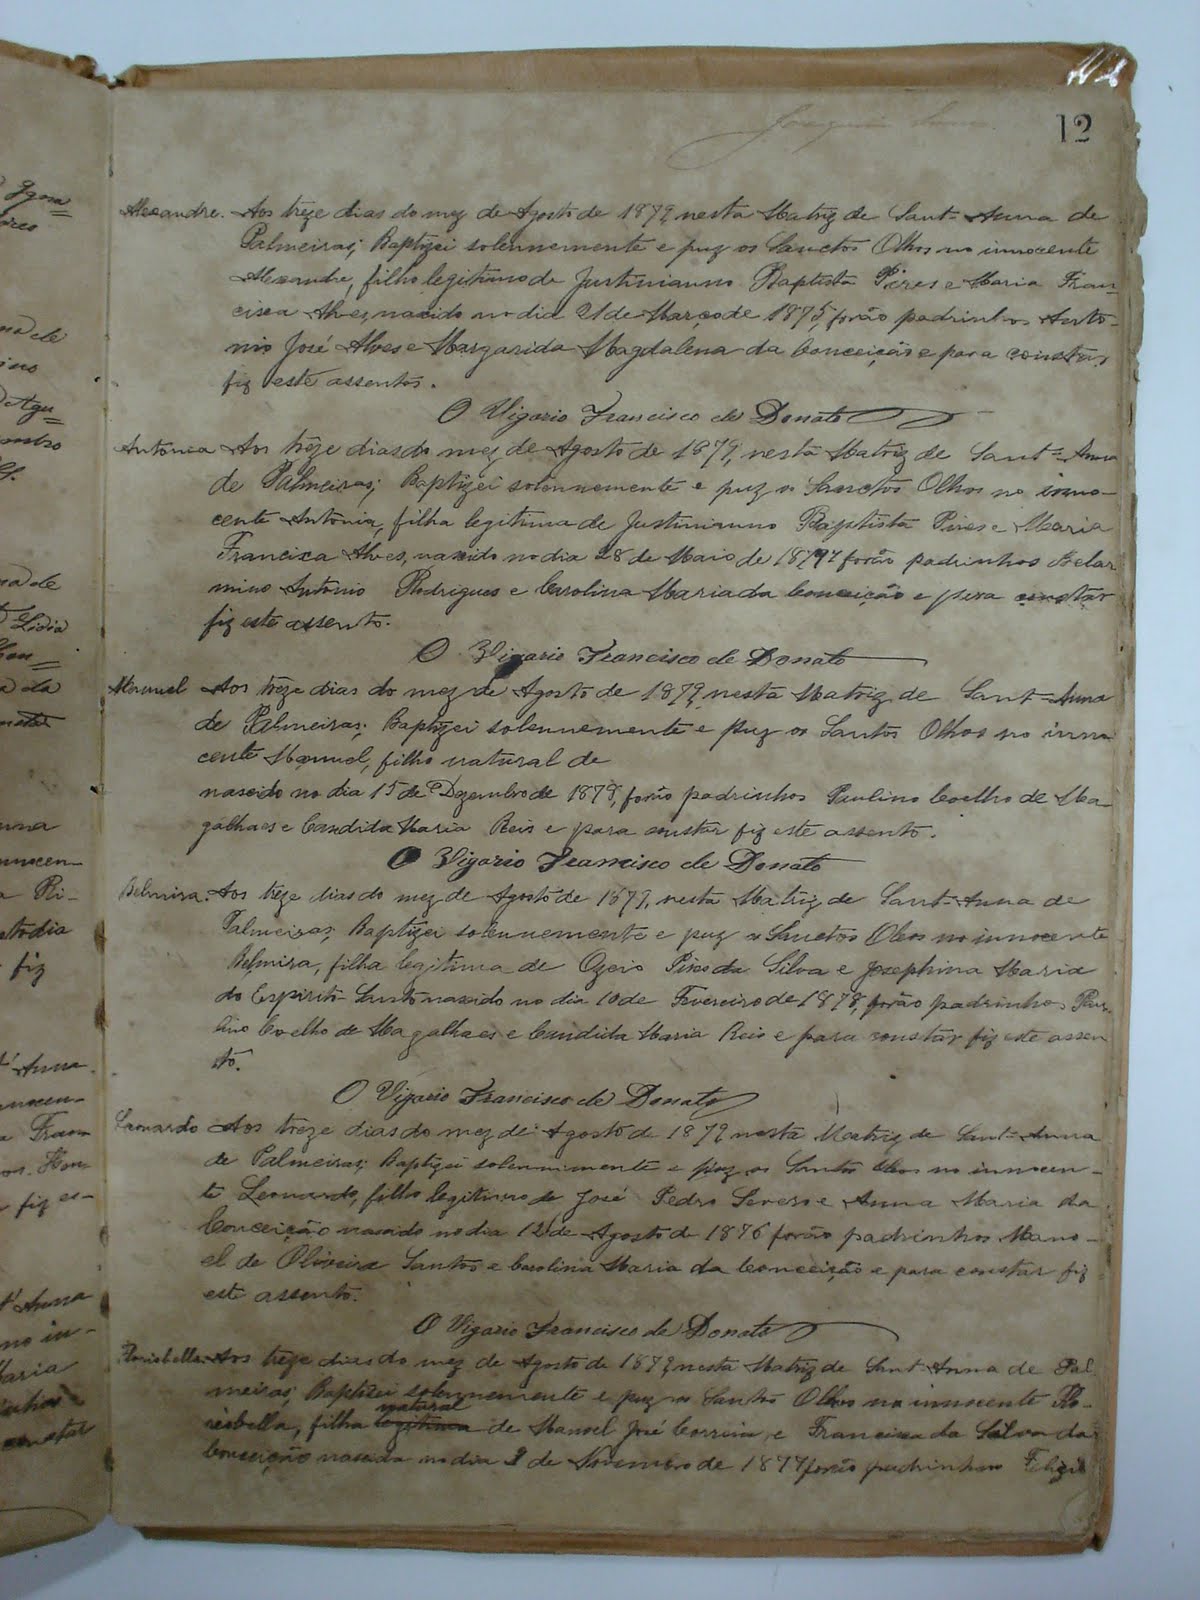 12
Alexandre. Aos treze dias do mez de Agosto de 1879, nesta Matriz de Sant-Anna de
Palmeiras; Baptizei solennemente e puz os Sanctos Olhos no innocente
Alexandre, filho legitimo de Justinianno Baptista Pires e Maria Fran-
cisca Alves, nascido no dia 21 de Março de 1875, forão padrinhos Anto-
nio José Alves e Margarida Magdalena da Conceição e para constar
fiz este assento.
O Vigario Francisco de Donato
Antonia Aos treze dias do mez de Agosto de 1879, nesta Matriz de Sant-Anna
de Palmeiras; Baptizei solennemente e puz os Sanctos Olhos no inno-
cente Antonia, filha legitima de Justinianno Baptista Pires e Maria
Francisca Alves, nascido no dia 28 de Maio de 1879 forão padrinhos Belar
mino Antonio Rodrigues e Carolina Maria da Conceição e para constar
fiz este assento.
O Vigario Francisco de Donato
Manuel Aos treze dias do mez de Agosto de 1879, nesta Matriz de Sant-Anna
de Palmeiras; Baptizei solennemente e puz os Santos Olhos no inno
cente Manuel, filho natural de
nascido no dia 15 de Dezembro de 1878, forão padrinhos Paulino Coelho de Ma-
galhaes e Candida Maria Reis e para constar fiz este assento.
O Vigario Francisco de Donato
Belmira. Aos treze dias do mez de Agosto de 1879, nesta Matriz de Sant-Anna de
Palmeiras; Baptizei solennemente e puz os Sanctos Oleos no innocente
Belmira, filha legitima de Ozeio Pires da Silva e Josephina Maria
do Espirito Santo nascido no dia 10 de Fevereiro de 1878, forão padrinhos Pau-
lino Coelho de Magalhaes e Candida Maria Reis e para constar fiz este assen
to.
O Vigario Francisco de Donato
Leonardo Aos treze dias do mez de Agosto de 1879 nesta Matriz de Sant-Anna
de Palmeiras; Baptizei solennimente e puz os Santos Oleos no innocen-
te Leonardo, filho legitimo de José Pedro Severo e Anna Maria da
Conceição nascido no dia 12 de Agosto de 1876 forão padrinhos Mano-
el de Oliveira Santos e Carolina Maria da Conceição e para constar fiz
este assento.
O Vigario Francisco de Donato
Florisbella. Aos treze dias do mez de Agosto de 1879 nesta Matriz de Sant-Anna de Pal
meiras; Baptizei solennemente e puz os Santos Olhos no innocente Flo-
risbella, filha legitima natural de Manoel José Correia e Francisca da Silva da
Conceição nascida no dia 2 de Novembro de 1877 forão padrinhos